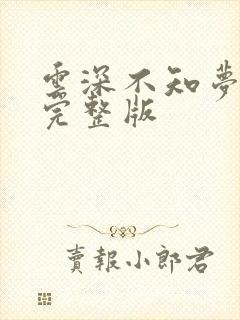 雲深不知夢
完整版
賣報小郎君